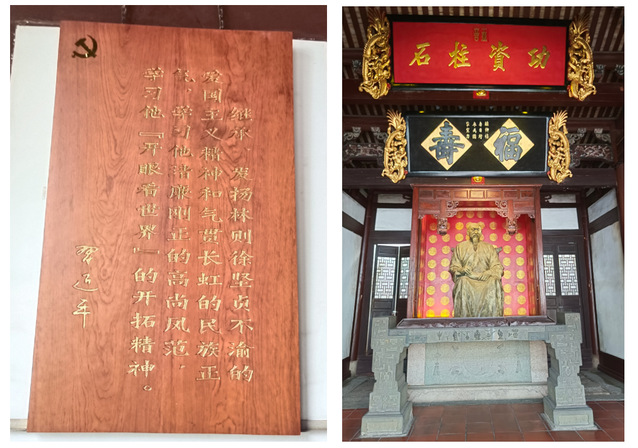 继承、发扬林则徐坚贞不渝的
爱国主义精神和气贯长虹的民族正
气，学习他清廉刚正的高尚风范，
学习他『开眼看世界』的开拓精神。
习近平
功資柱石
福壽